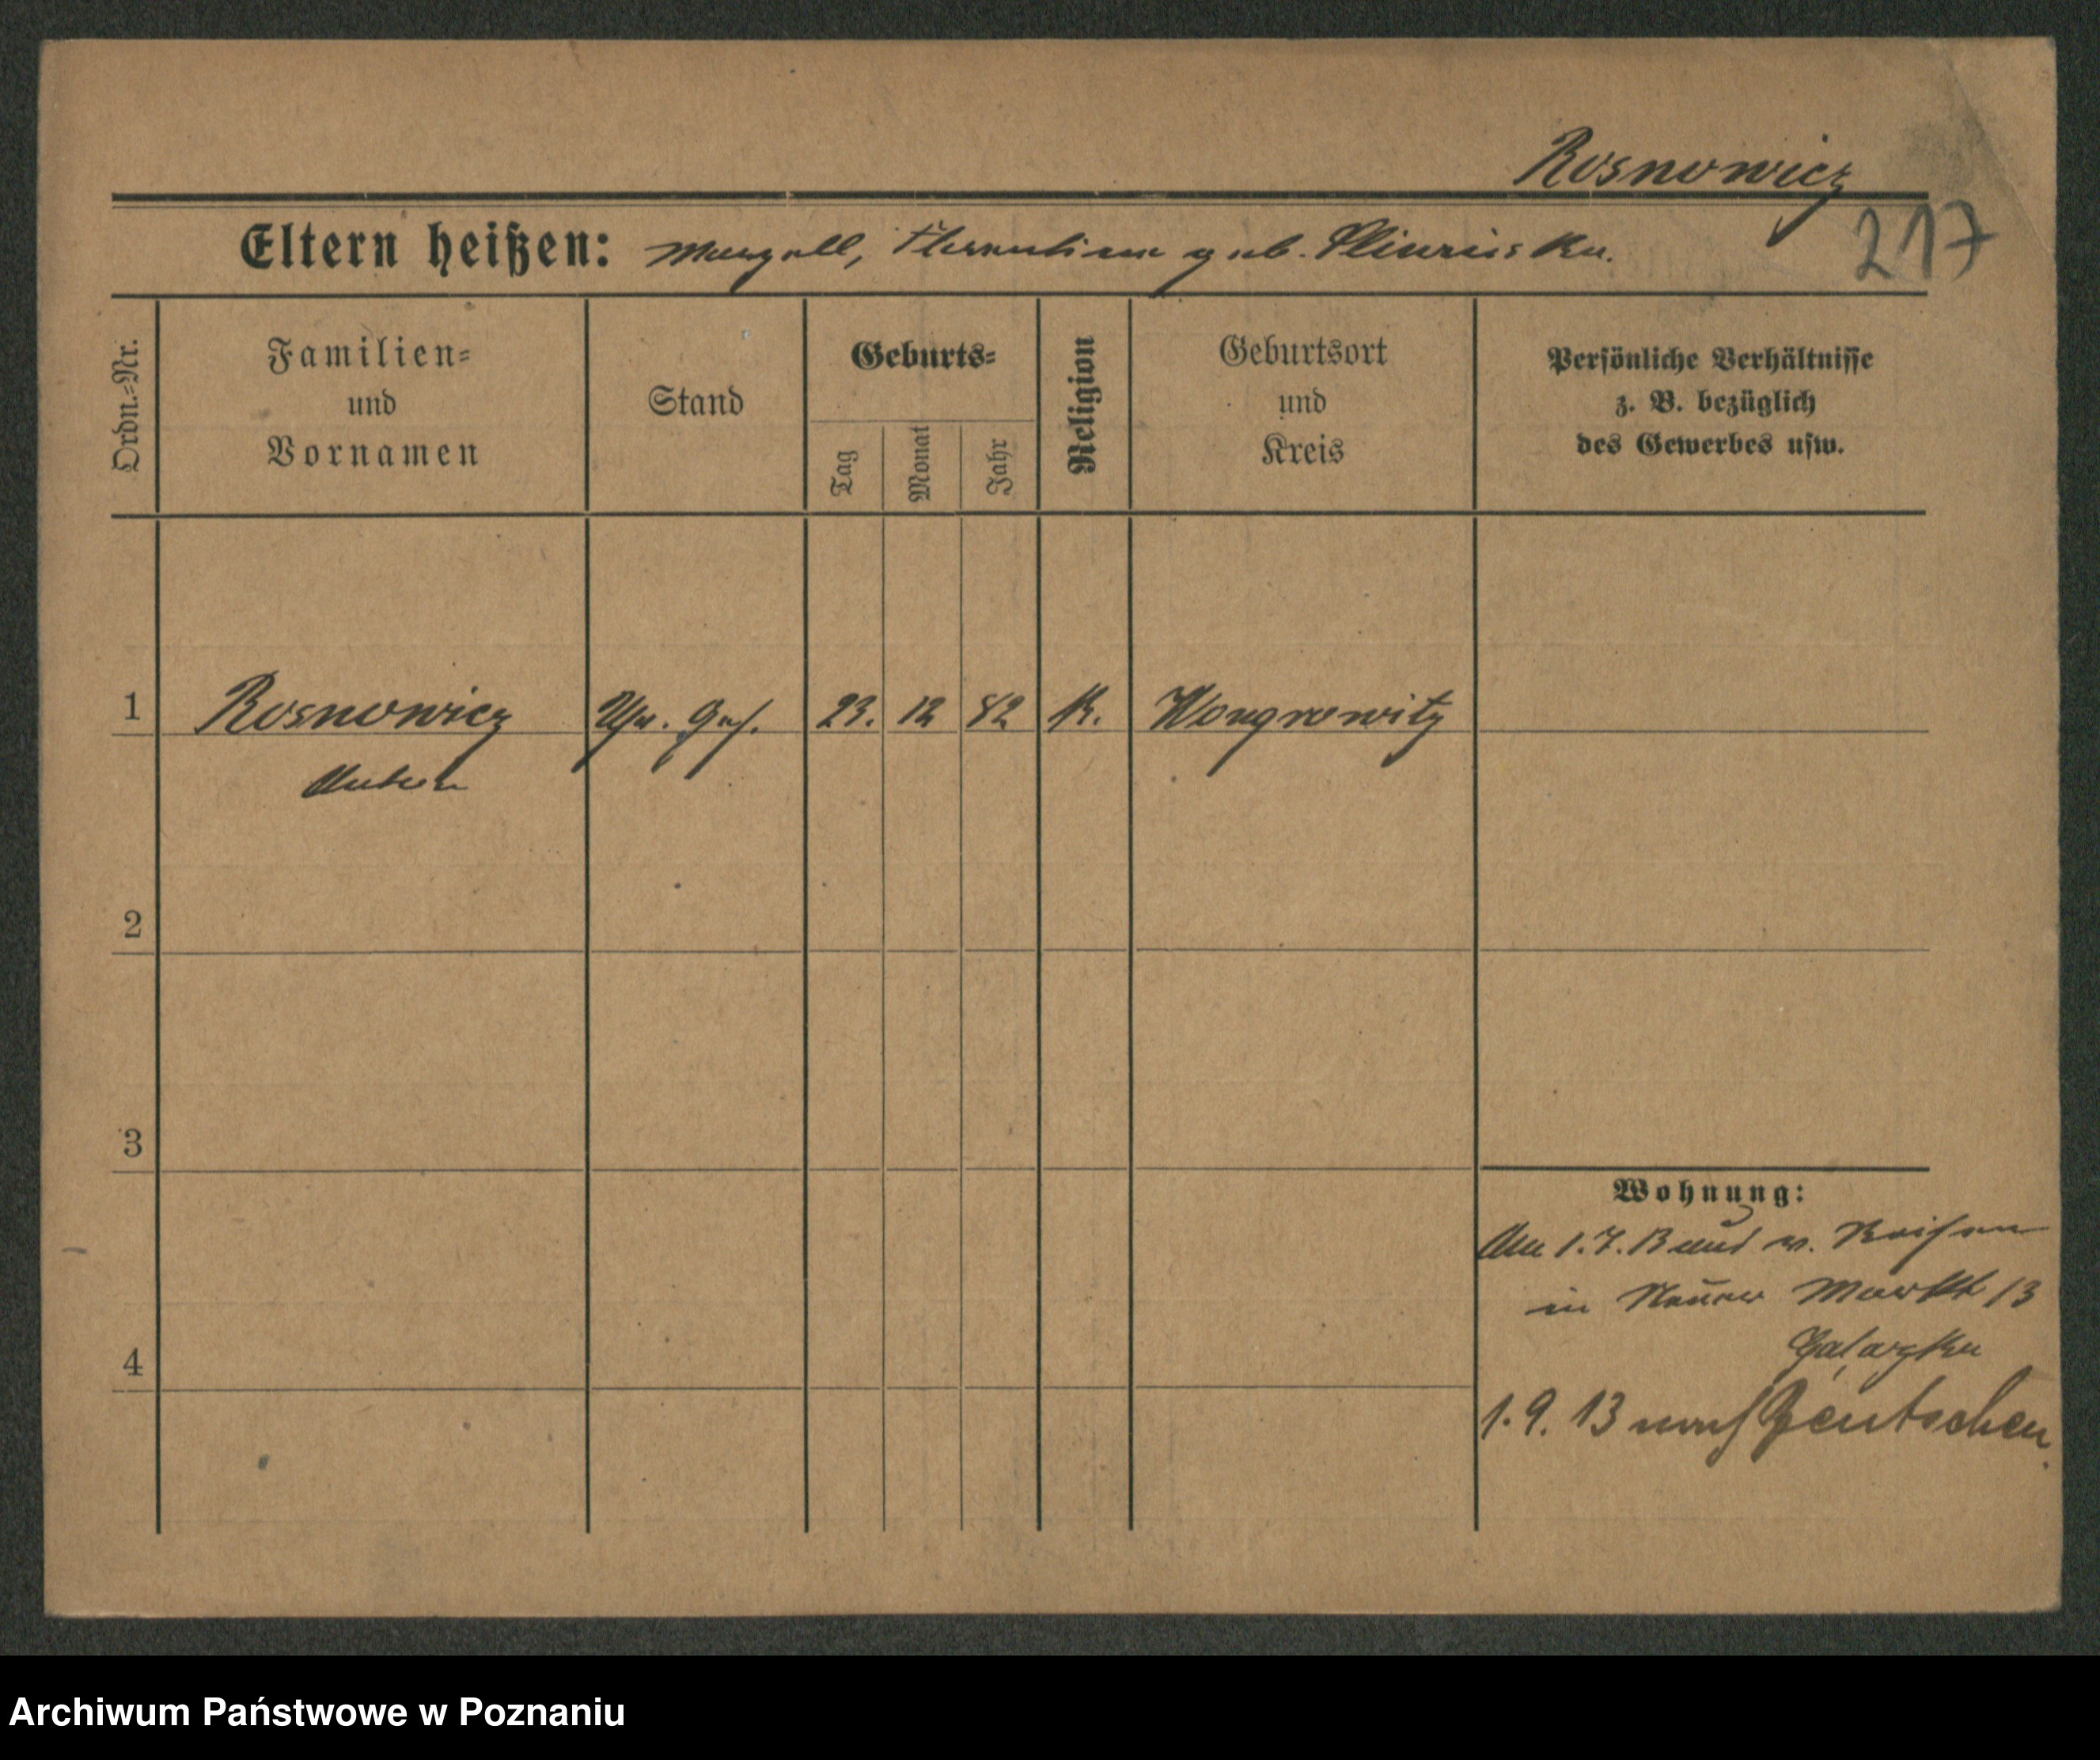 Rosnowicz
217
Eltern heißen: Marzell, Florentine geb. Sliwinska.
Ordn.-Nr.
Familien-
und
Vornamen
Stand
Geburts-
Tag
Monat
Jahr
Religion
Geburtsort
und
Kreis
Persönliche Verhältnisse
z. B. bezüglich
des Gewerbes usw.
1 Rosnowicz 23. 12 82 K. Wongrowitz
Anton
2
3
4
Wohnung:
Am 1.7.13 aus w. Reisen
in Neuer Markt 13
1.9.13 nach Bentschen.
Archiwum Państwowe w Poznaniu